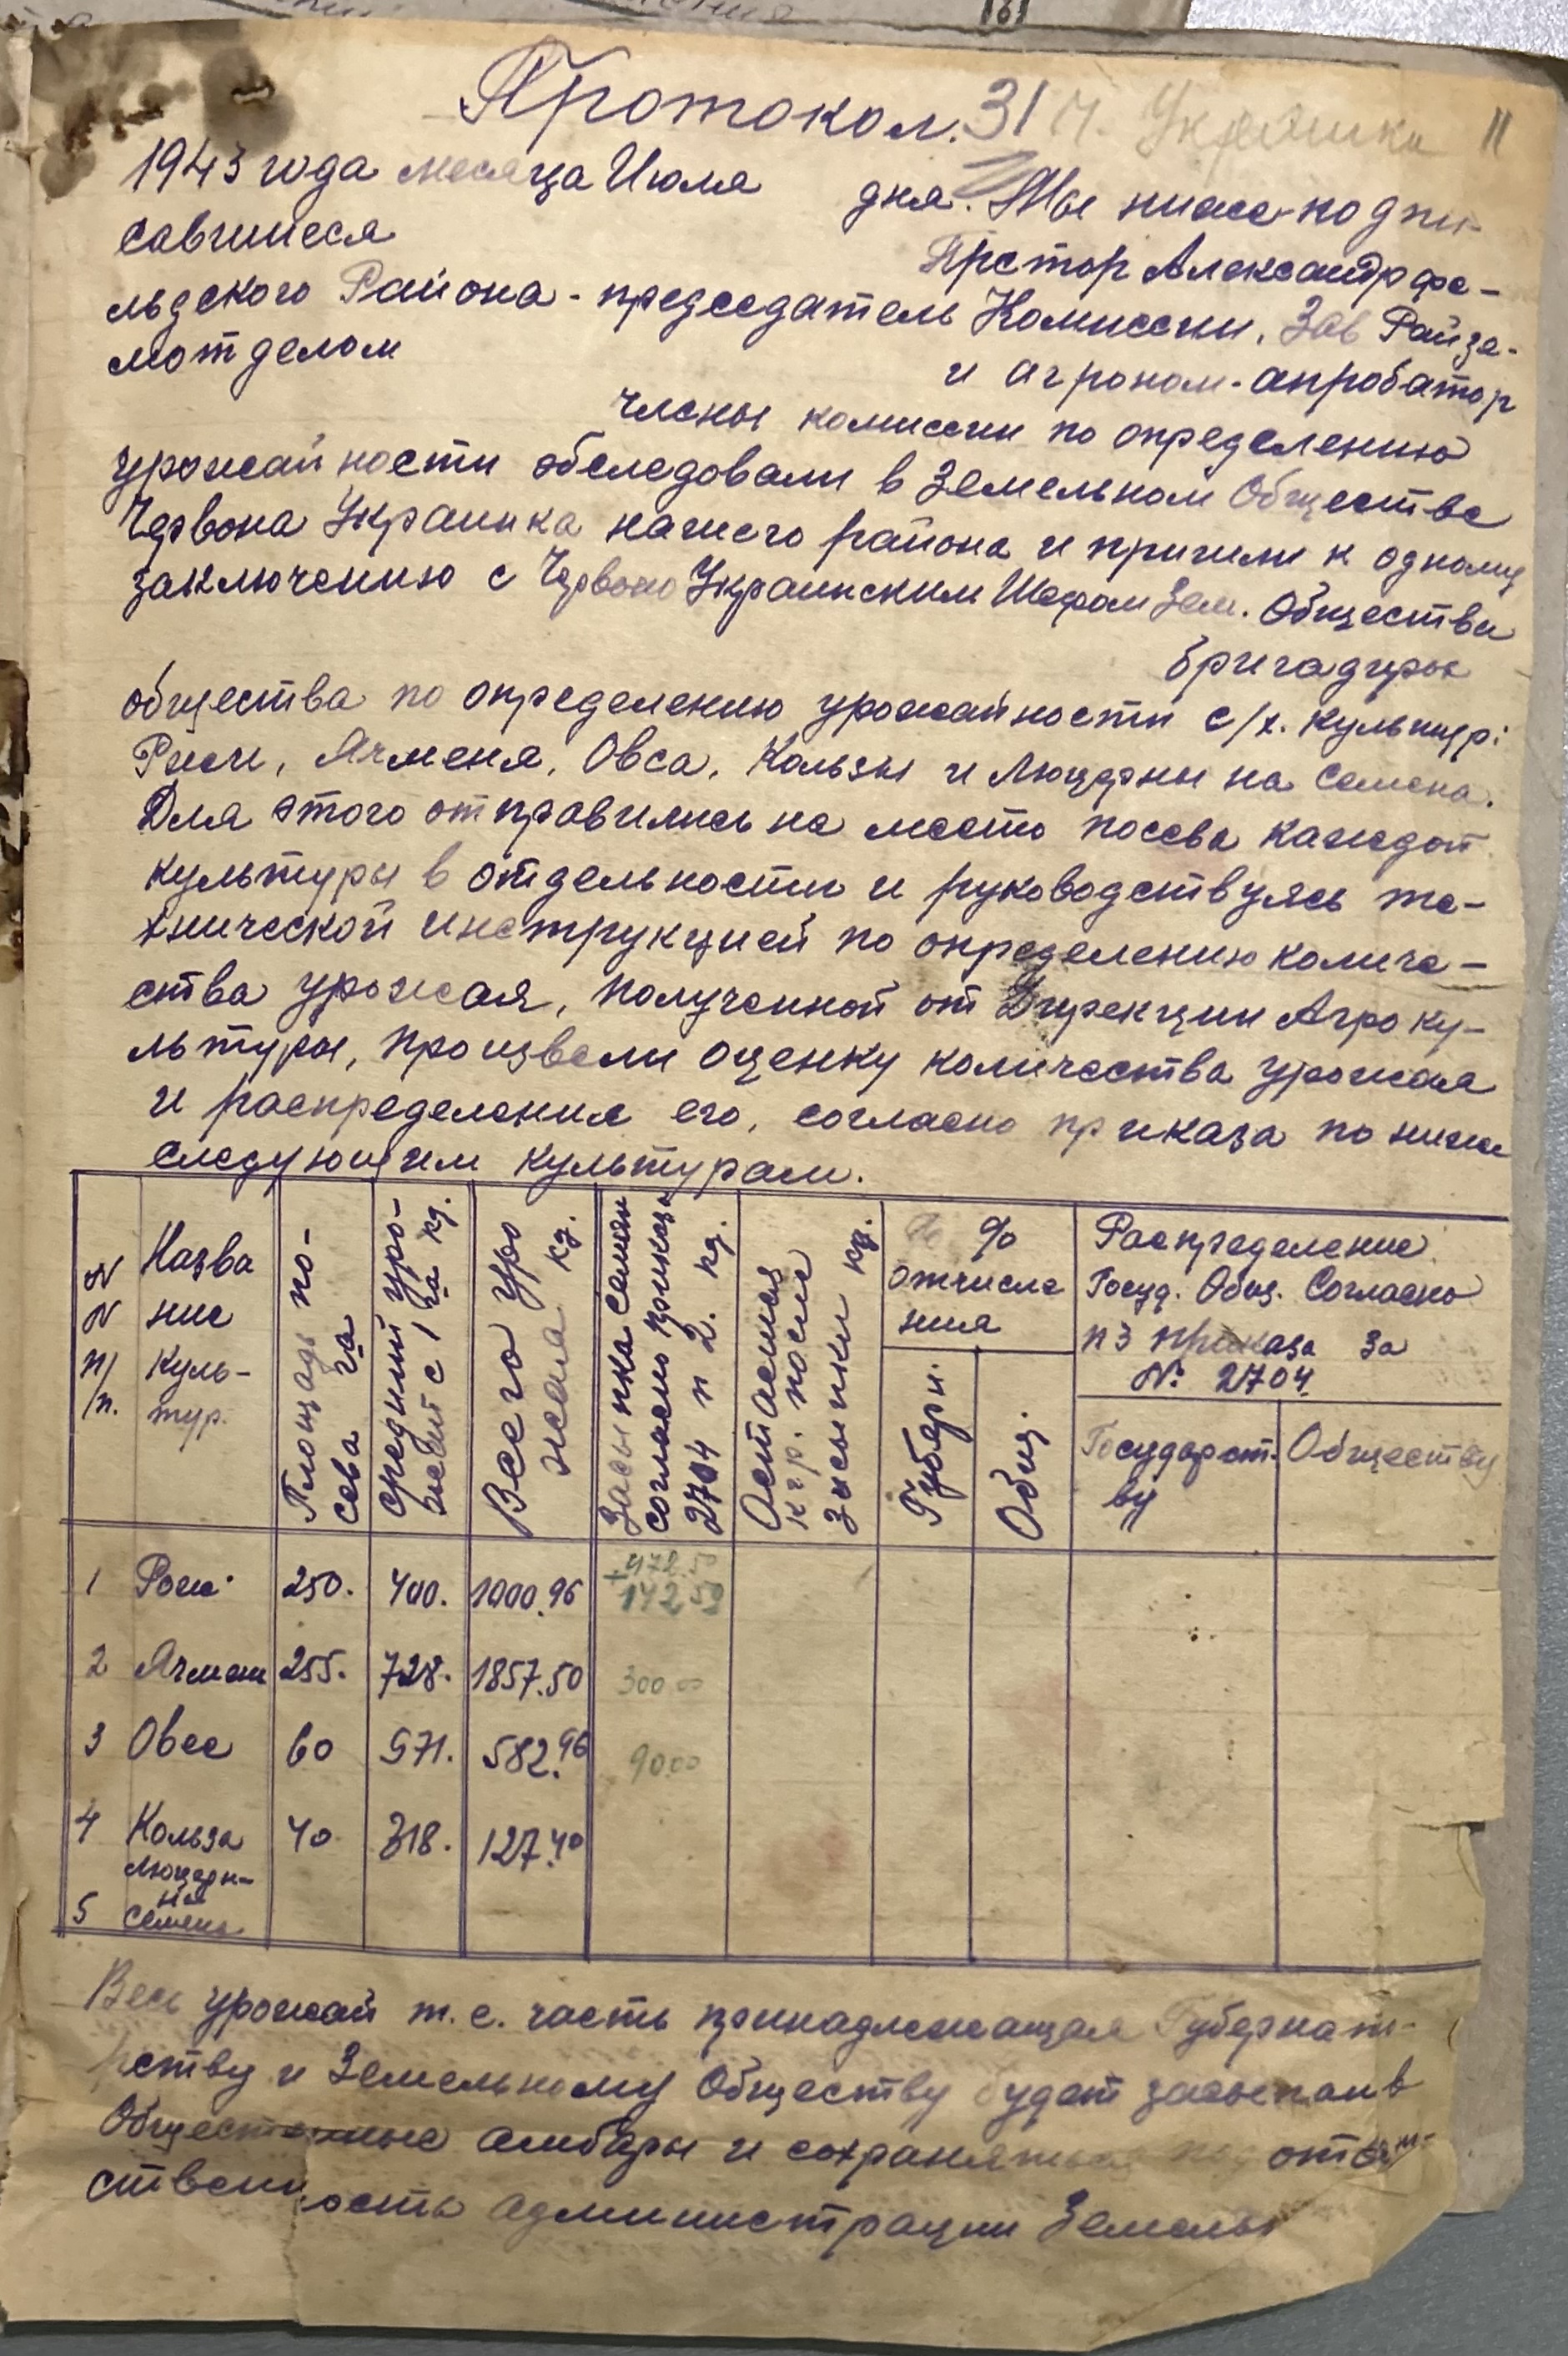 Протокол. 31 Ч. Украинка 11
1943 года месяца Июля дня. Мы ниже-подпи-
савшиеся Претор Александрфе-
льдского Района - председатель Комиссии, Зав Райзе-
мотделом и агроном-апробатор
члены комиссии по определению
урожайности обследовали в Земельном Обществе
Червона Украинка нашего района и пришли к одному
заключению с Червоно Украинским Шефом Зем. Общества
бригадиры
общества по определению урожайности с/х. культур:
Ржи, Ячменя, Овса, Кользы и Люцерны на семена.
Для этого отправились на место посева каждой
культуры в отдельности и руководствуясь те-
хнической инструкцией по определению количе-
ства урожая, полученной от Дирекции Агроку-
льтуры, произвели оценку количества урожая
и распределения его, согласно приказа по ниже
следующим культурам.
N N п/п. Назва ние куль- тур. Площадь по- сева га средний уро- жай с 1 га кг. Всего уро жая кг. Засыпка семян согласно приказа 2704 п 2. кг. Остаеться кгр. после засыпки кг. % отчисле ния Распределение Госуд. Общ. Согласно п 3 приказа за № 2704.
Губерн. Общ. Государст- ву Обществу
1 Рожь 250. 400. 1000.96 +978.50
142 50
2 Ячмень 255. 728. 1857.50 300 00
3 Овес 60 971. 582.96 90.00
4 Кольза 40 318. 127.40
Люцерн-
на
5 семена
Весь урожай т.е. часть принадлежащая Губернат-
рству и Земельному Обществу будет засыпан в
Общественные амбары и сохраняться под ответ-
ственность администрации Земельн